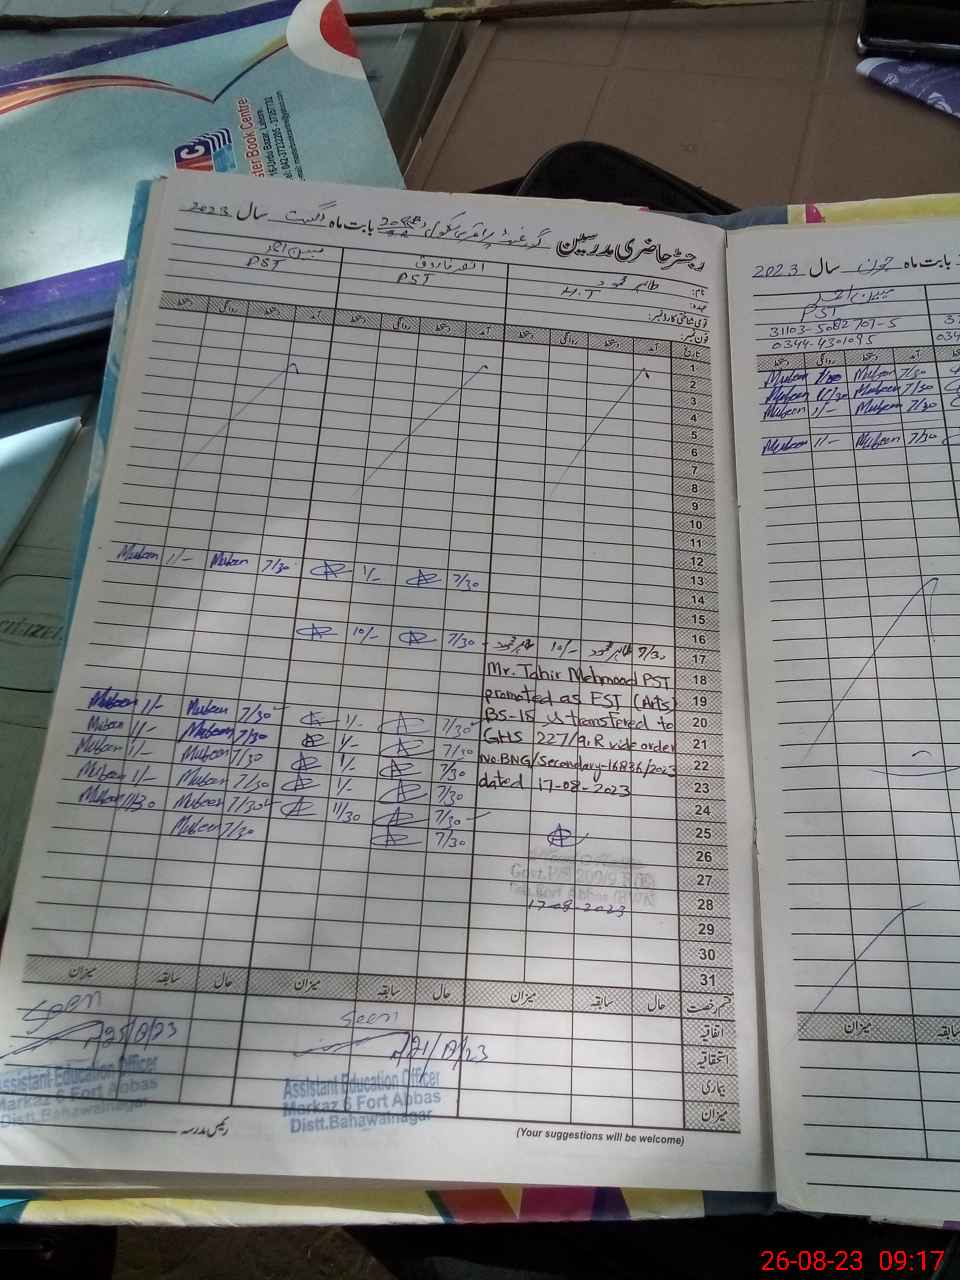 ster Book Centre
رجسٹر حاضری مدرسین گورنمنٹ پرائمری سکول بابت ماہ اگست سال 2023
نام: طاہر محمود
عہدہ: H.T
PST
PST
قومی شناختی کارڈ نمبر:
فون نمبر:
تاریخ آمد دستخط روانگی دستخط آمد دستخط روانگی دستخط آمد دستخط روانگی دستخط
1
2
3
4
5
6
7
8
9
10
11
12
13 7/30 1/- 7/30 Mubeen 1/- Mubeen
14
15
16
17 7/30 طاہر محمود 10/- طاہر محمود 7/30 10/-
18 Mr. Tahir Mehmood PST
19 promoted as EST (Arts)
20 BS-15 is transfered to
21 GHS 227/9.R vide order
22 No.BNG/Secondary-16836/2023
23 dated 17-08-2023
24
25
26
27
28 17-08-2023
29
30
31
7/30 1/- 7/30 Mubeen 1/- Mubeen
7/30 1/- 7/30 Mubeen 1/- Mubeen
7/30 1/- 7/30 Mubeen 1/- Mubeen
7/30 1/- 7/30 Mubeen 1/- Mubeen
7/30 11/30 7/30 Mubeen 11/30 Mubeen
7/30 7/30 Mubeen
قسم رخصت حال سابقہ میزان حال سابقہ میزان حال سابقہ میزان
اتفاقیہ
استحقاقیہ
بیماری
میزان
Seen
21/8/23
Assistant Education Officer
Markaz 6 Fort Abbas
Distt.Bahawalnagar
Seen
25/8/23
Assistant Education Officer
Markaz 6 Fort Abbas
Distt.Bahawalnagar
رئیس مدرسہ
(Your suggestions will be welcome)
بابت ماہ جون سال 2023
PST
31103-5082707-5
0344-4301095
آمد دستخط روانگی دستخط
7/30 Mubeen Mubeen
7/30 Mubeen 11/30 Mubeen
7/30 Mubeen 1/- Mubeen
7/30 Mubeen 11/- Mubeen
میزان
سابقہ
26-08-23 09:17